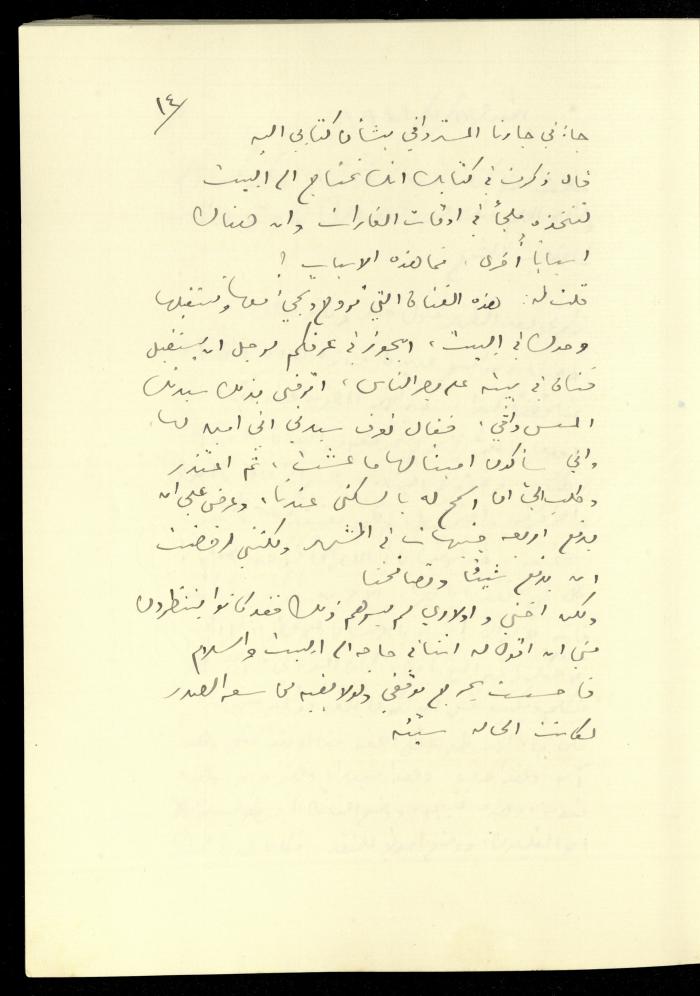 ١٤/
جاءني جارنا المستر واقي بشأن كتابي اليه
قال ذكرت في كتابك انك تحتاج الى البيت
لتتخذه ملجأ في اوقات الغارات وان هناك
اسباباً أخرى . فما هذه الاسباب ؟
قلت له: هذه الفتاة التي تروح وتجيء معها وتستقبلها
وحدك في البيت ، ايجوز في عرفكم لرجل ان يستقبل
فتاة في بيته على مرأى الناس ، اترضى بذلك سيدتك
المسس واقي ؟ فقال تعرف سيدتي اني امين لها
واني سأكون امينا لها ما عشت ، ثم اعتذر
وطلب الي ان اسمح له بالسكنى عندنا ، وعرض علي ان
يدفع اربعة جنيهات في الشهر ولكنني رفضت
ان يدفع شيئا وتصافحنا
ولكن اختي واولادي لم يسرهم ذلك فقد كانوا ينتظرون
مني ان اقول له اننا في حاجه الى البيت والسلام
فاحسست بحرج موقفي ولولا بقية من سعة الصدر
لكانت الحاله سيئه